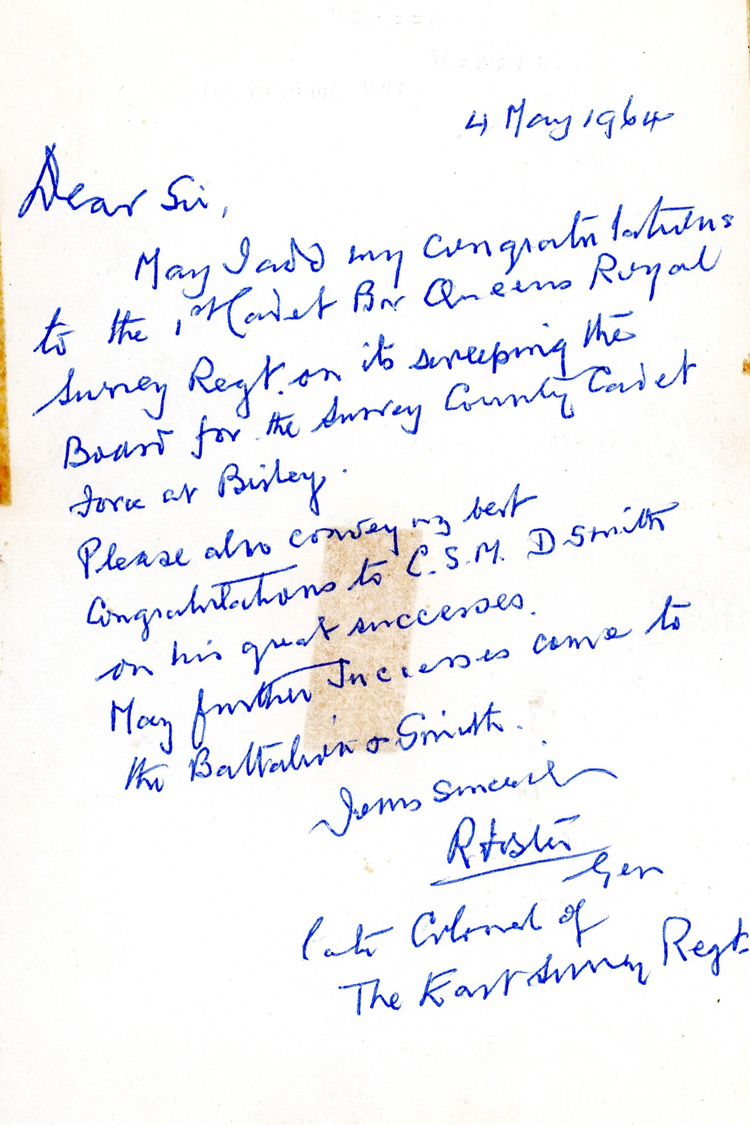 4 May 1964
Dear Sir,
May I add my congratulations
to the 1st Cadet Bn Queens Royal
Surrey Regt. on its sweeping the
Board for the Surrey County Cadet
Force at Bisley.
Please also convey my best
Congratulations to C.S.M. D Smith
on his great successes.
May further Successes come to
the Battalion & Smith.
Yours Sincerely
R Foster
Gen
late Colonel of
The East Surrey Regt.